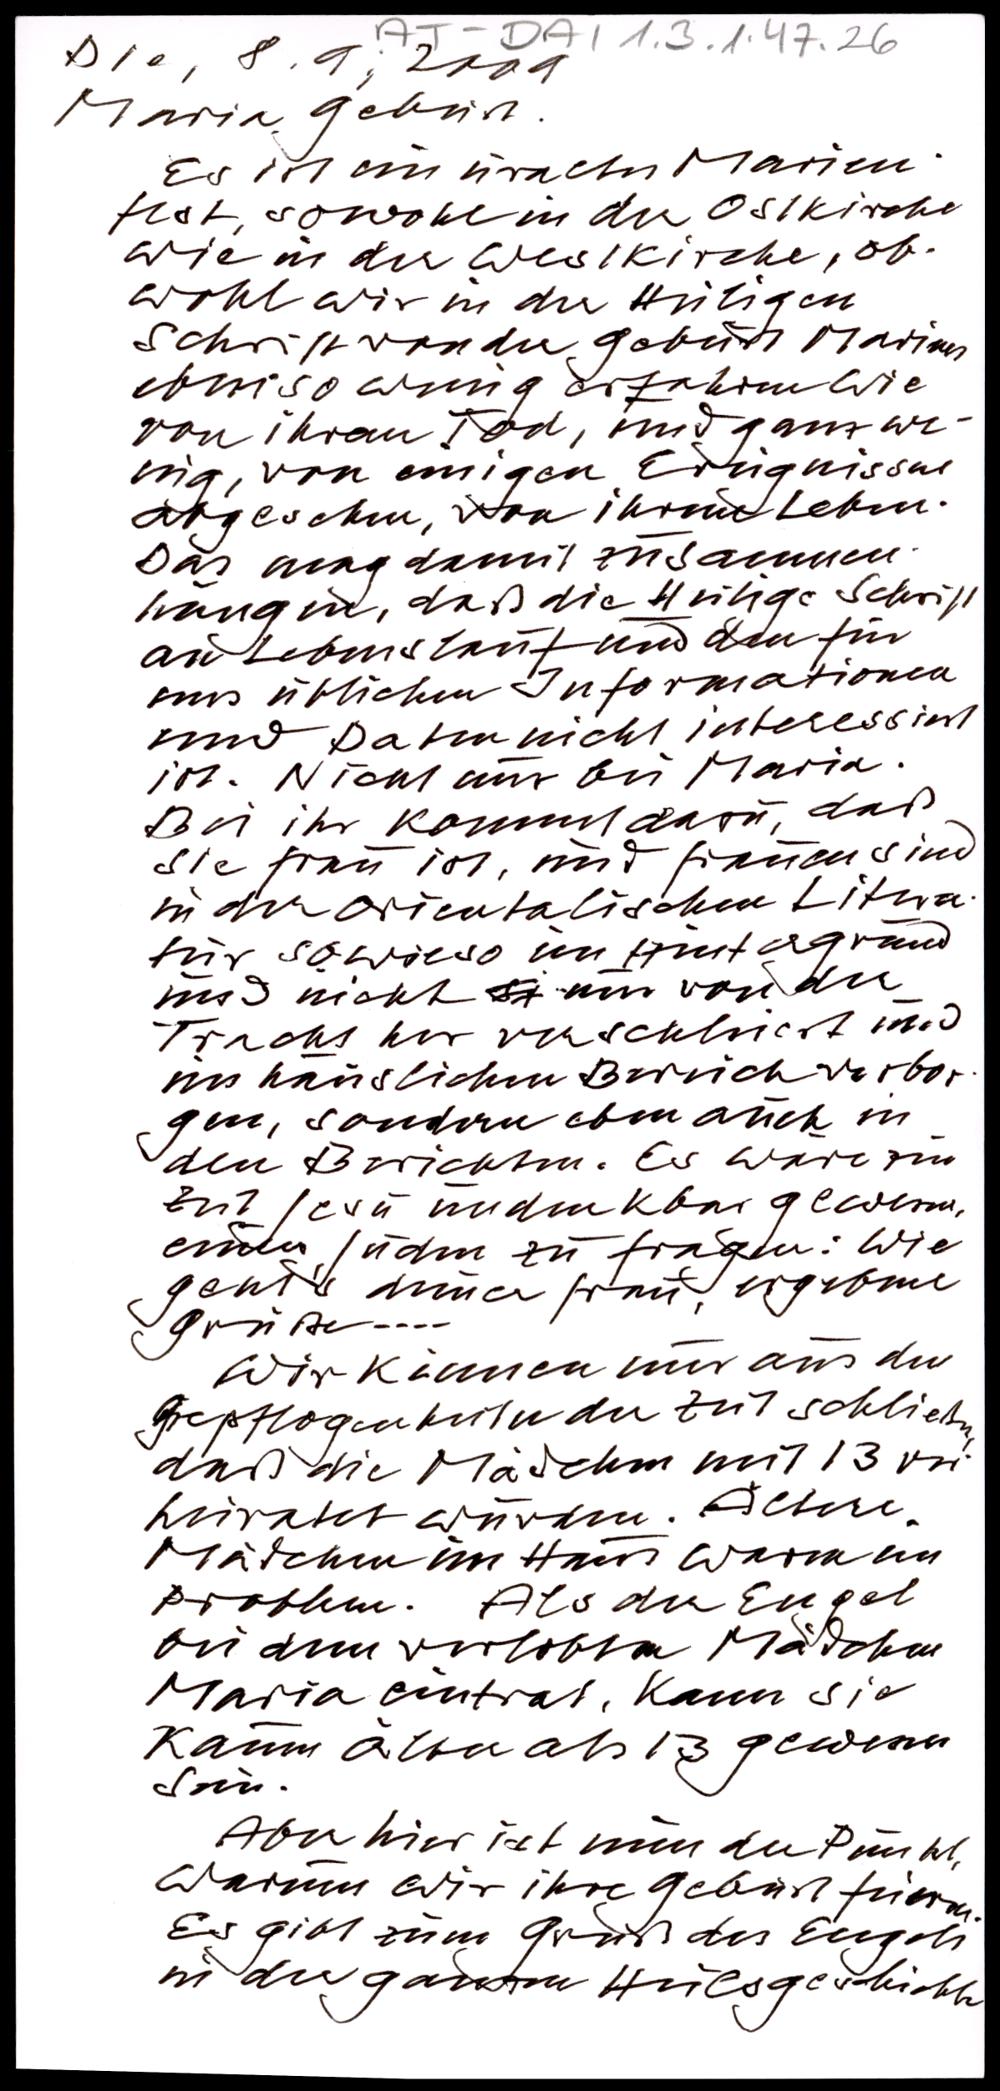 AT-DAI 1.3.1.47.26
Die, 8.9., 2009
Maria Geburt.
Es ist ein uraltes Marien-
fest, sowohl in der Ostkirche
wie in der Westkirche, ob-
wohl wir in der Heiligen
Schrift von der Geburt Mariens
ebenso wenig erfahren wie
von ihrem Tod, und ganz we-
nig, von einigen Ereignissen
abgesehen, von ihrem Leben.
Das mag damit zusammen-
hängen, daß die Heilige Schrift
an Lebenslauf und den für
uns üblichen Informationen
und Daten nicht interessiert
ist. Nicht nur bei Maria.
Bei ihr kommt dazu, daß
sie Frau ist, und Frauen sind
in der orientalischen Litera-
tur sowieso im Hintergrund
und nicht nur von der
Tracht her verschleiert und
im häuslichen Bereich verbor-
gen, sondern eben auch in
den Berichten. Es wäre zur
Zeit Jesu undenkbar gewesen,
einen Juden zu fragen: Wie
geht's deiner Frau, ergebene
Grüße ----
Wir können nur aus den
Gepflogenheiten der Zeit schließen,
daß die Mädchen mit 13 ver-
heiratet wurden. Ältere
Mädchen im Haus waren ein
Problem. Als der Engel
bei dem verlobten Mädchen
Maria eintrat, kann sie
kaum älter als 13 gewesen
sein.
Aber hier ist nun der Punkt,
warum wir ihre Geburt feiern.
Es gibt zum Gruß des Engels
in der ganzen Heilsgeschichte